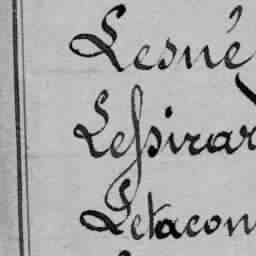 Lesné
Lessirar
Letacon